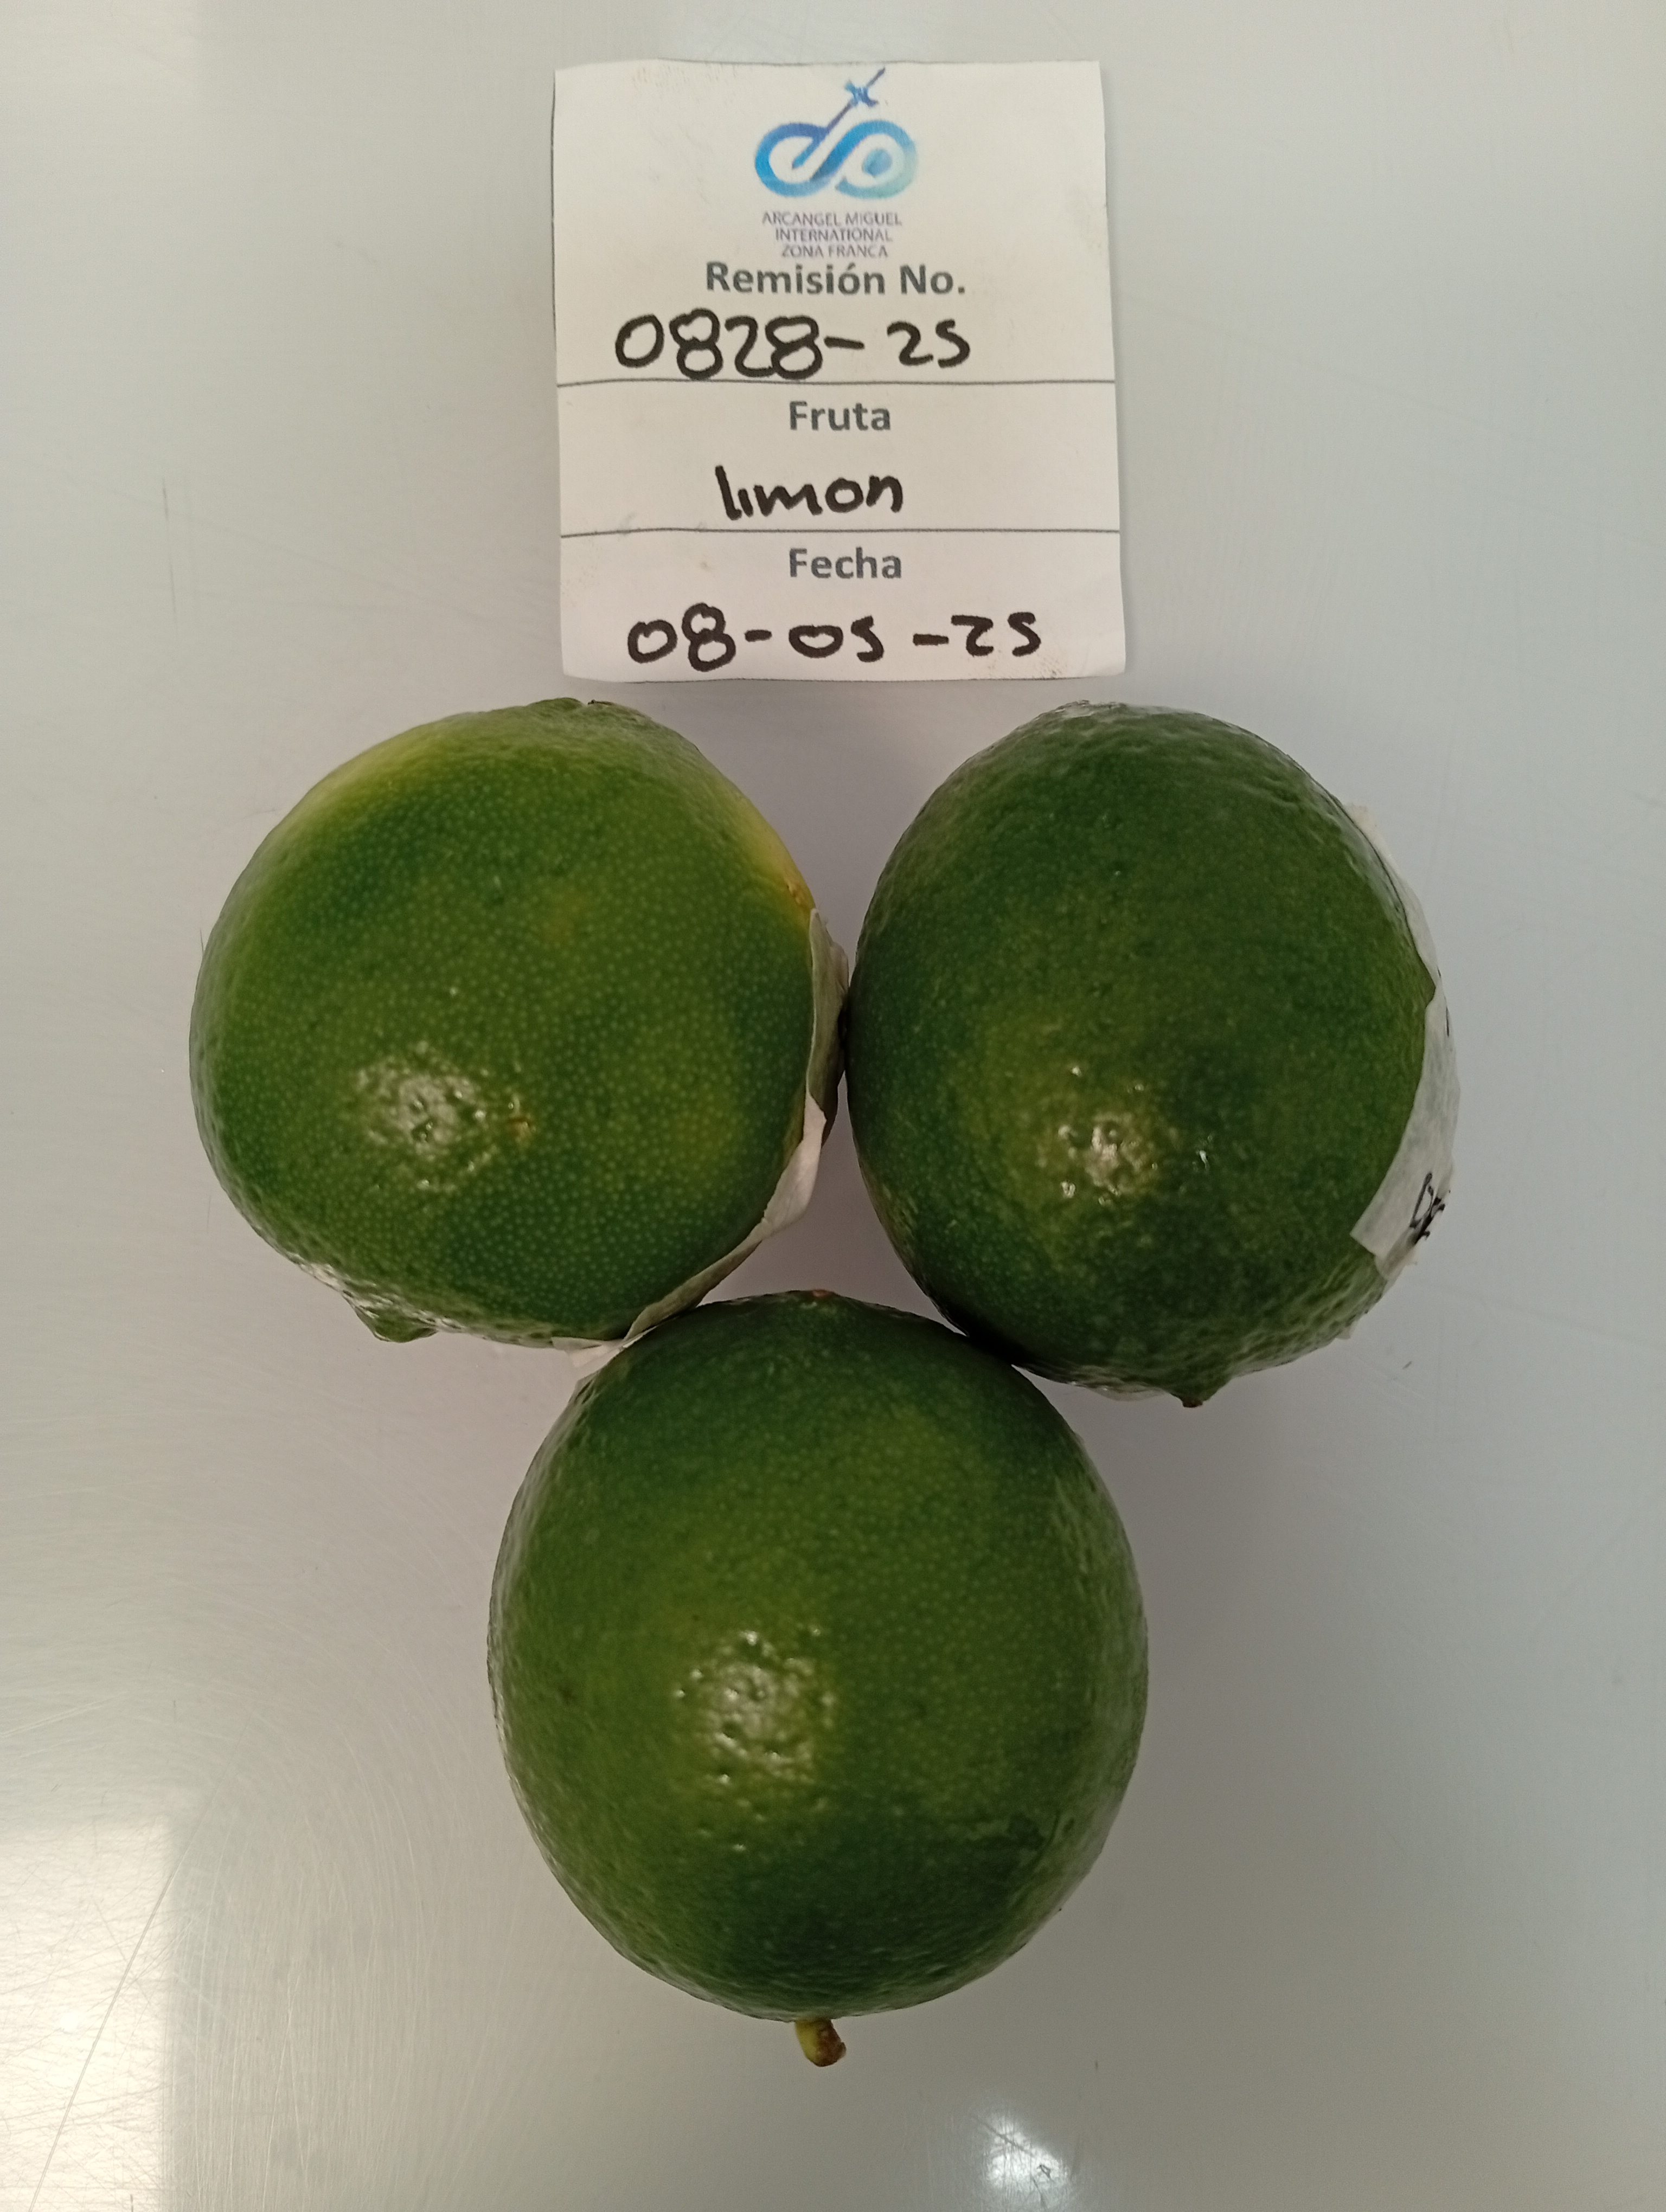 ARCANGEL MIGUEL
INTERNATIONAL
ZONA FRANCA
Remisión No.
0828-25
Fruta
limon
Fecha
08-05-25